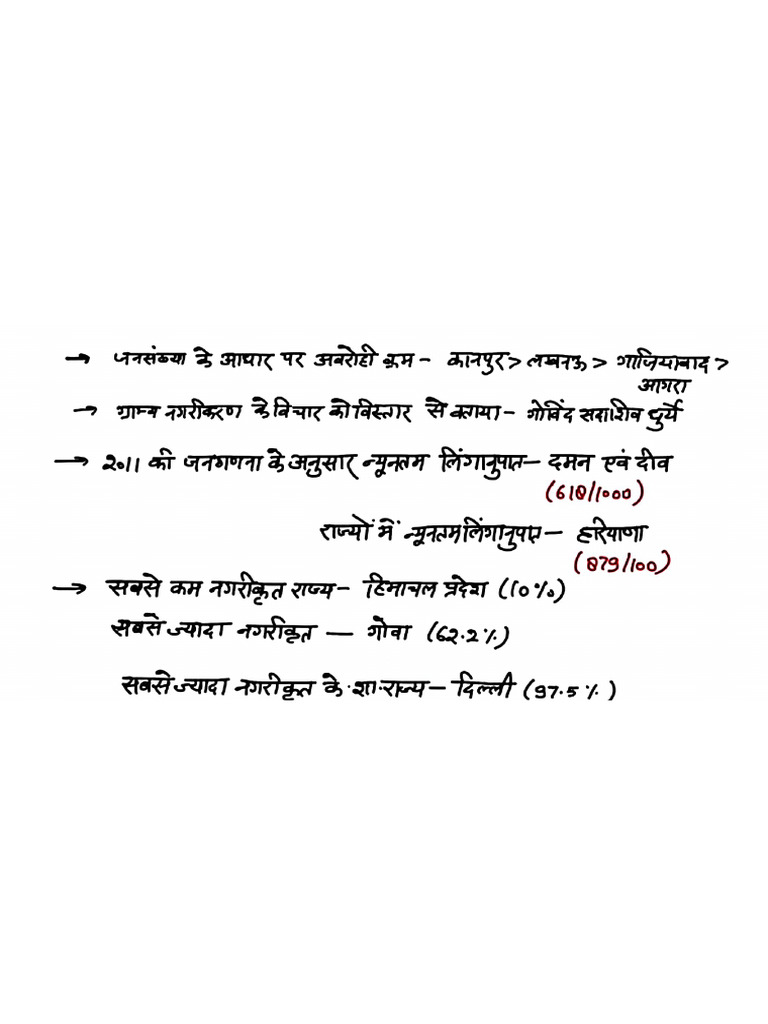 → जनसंख्या के आधार पर अवरोही क्रम - कानपुर > लखनऊ > गाजियाबाद >
आगरा
→ ग्राम्य नगरीकरण के विचार को विस्तार से बताया - गोविंद सदाशिव धुर्ये
→ 2011 की जनगणना के अनुसार न्यूनतम लिंगानुपात - दमन एवं दीव
(618/1000)
राज्यों में न्यूनतम लिंगानुपात - हरियाणा
(879/100)
→ सबसे कम नगरीकृत राज्य - हिमाचल प्रदेश (10%)
सबसे ज्यादा नगरीकृत - गोवा (62.2%)
सबसे ज्यादा नगरीकृत के.शा.राज्य - दिल्ली (97.5%)